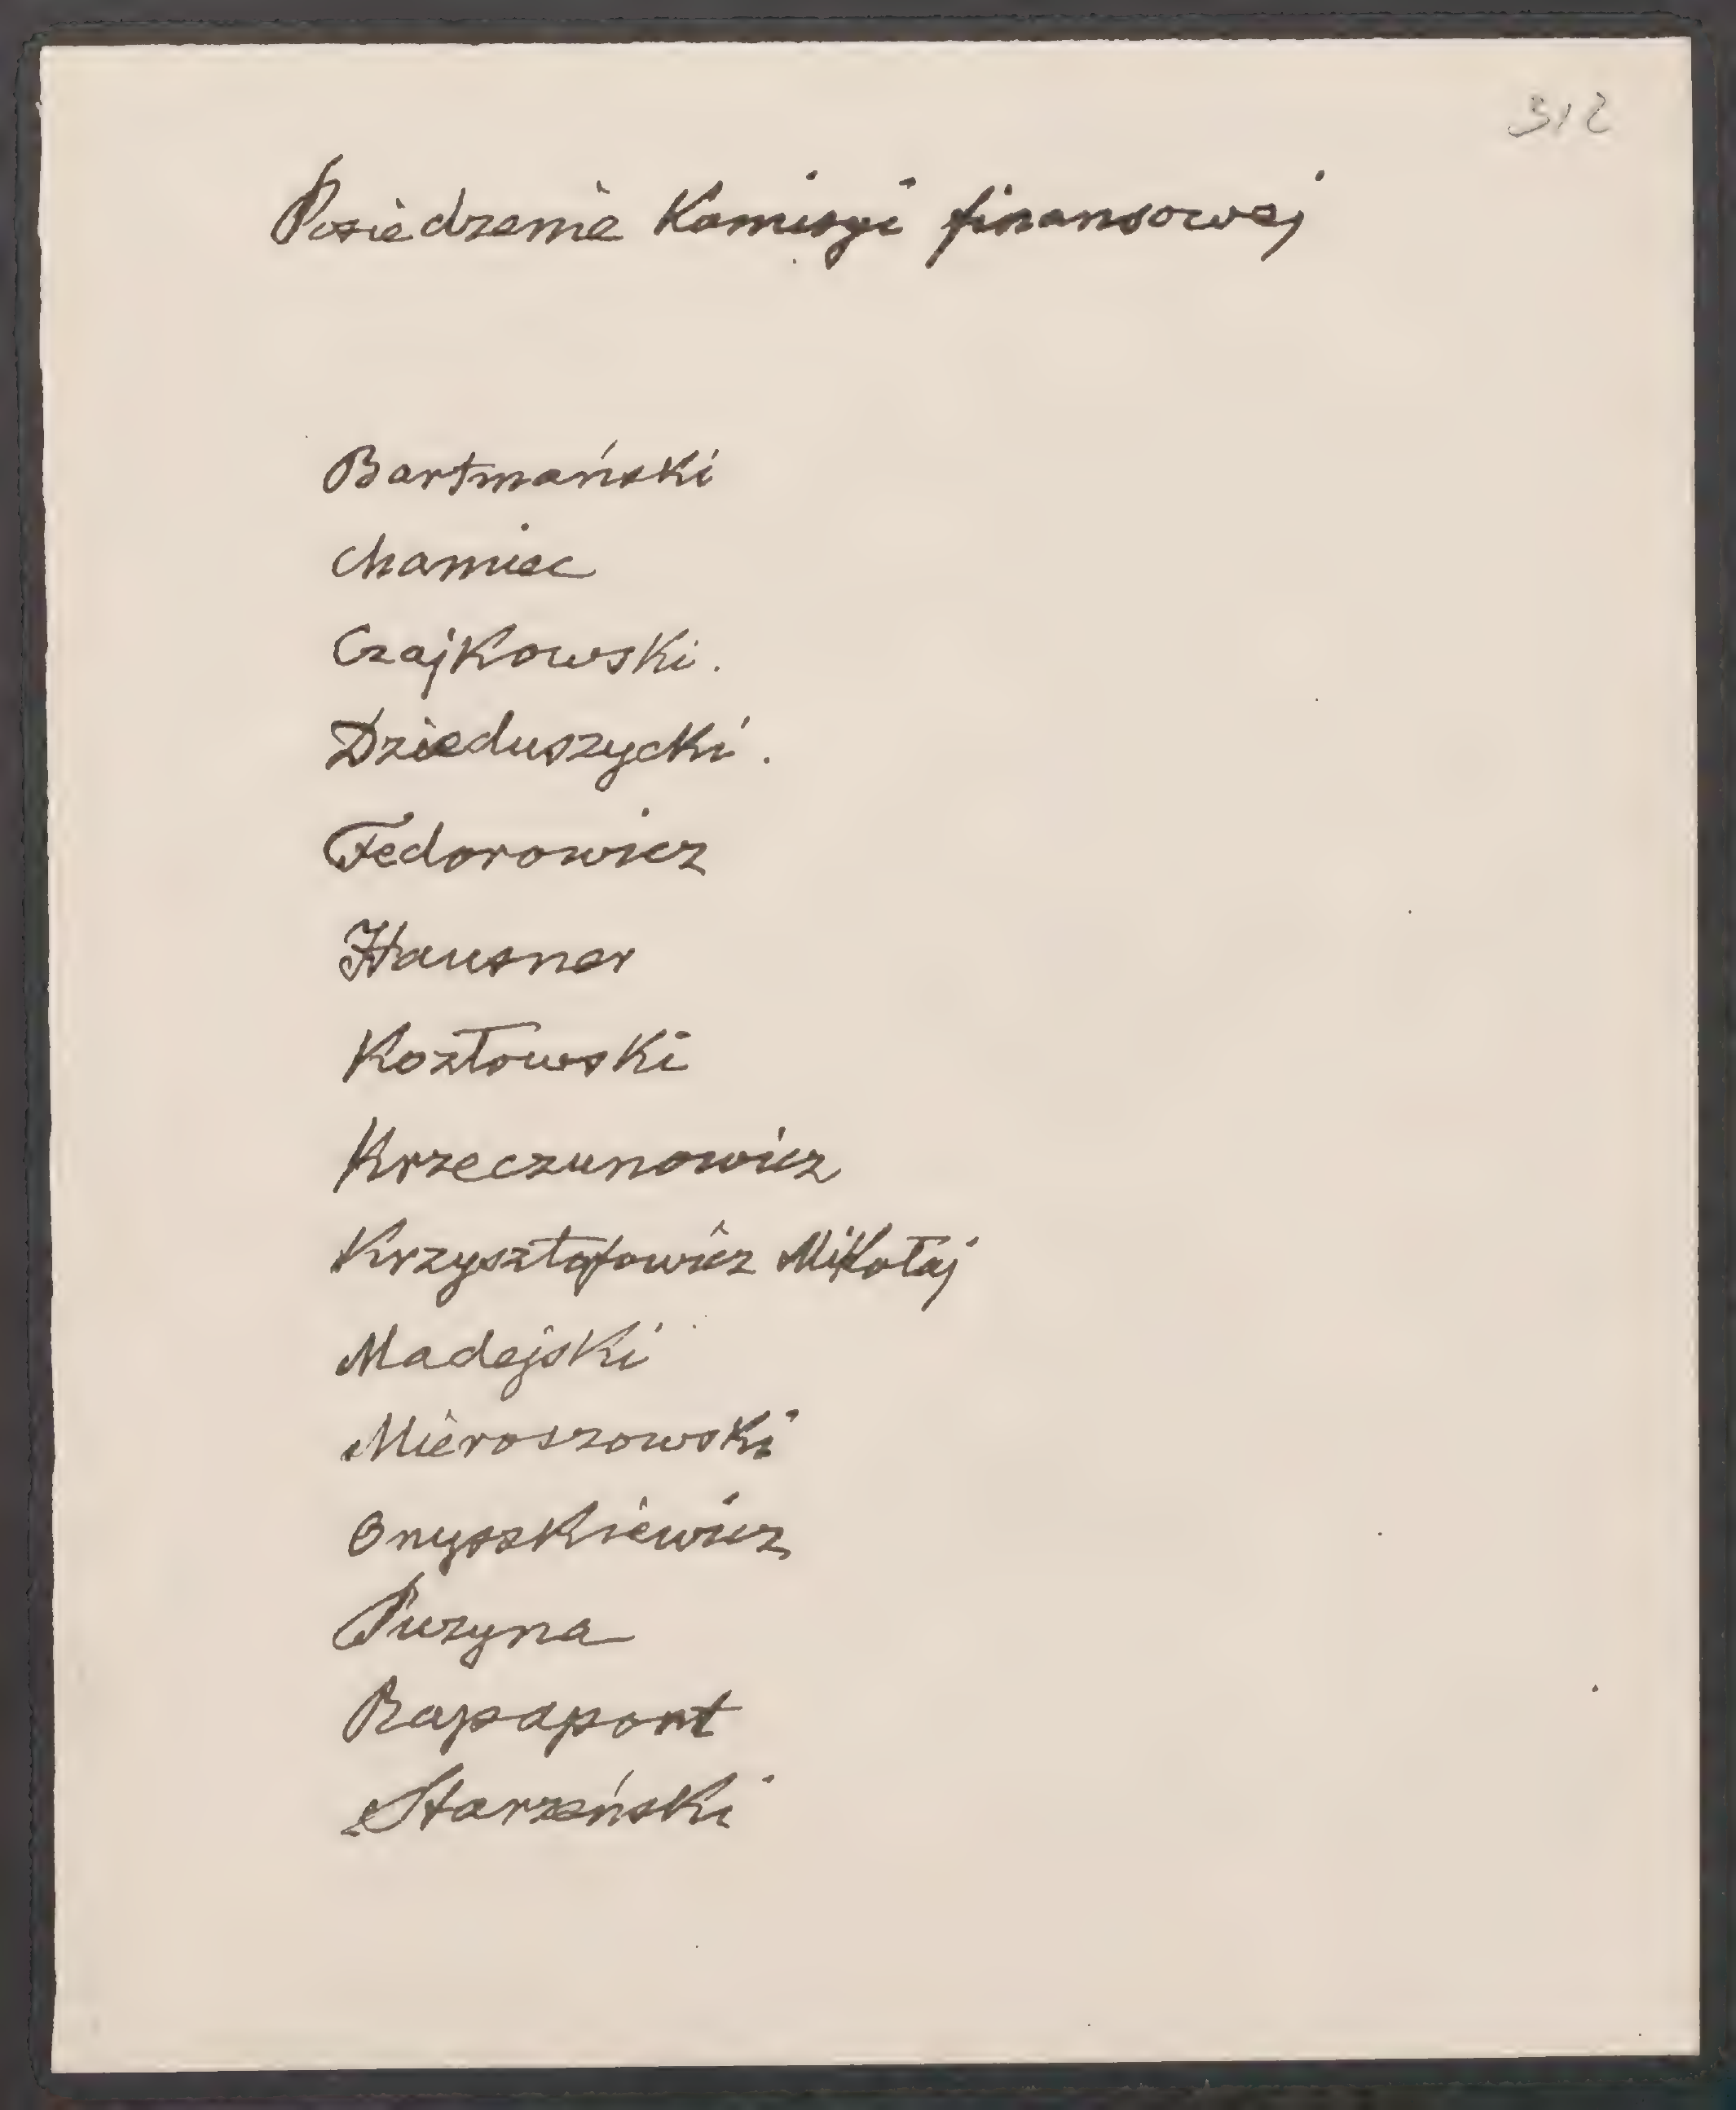 312
Posiedzenie Komisyi finansowej
Bartmański
Chamiec
Czajkowski.
Dzieduszycki.
Fedorowicz
Hausner
Kozłowski
Krzeczunowicz
Krzysztofowicz Mikołaj
Madejski
Mieroszowski
Onyszkiewicz
Puzyna
Rapaport
Starzeński